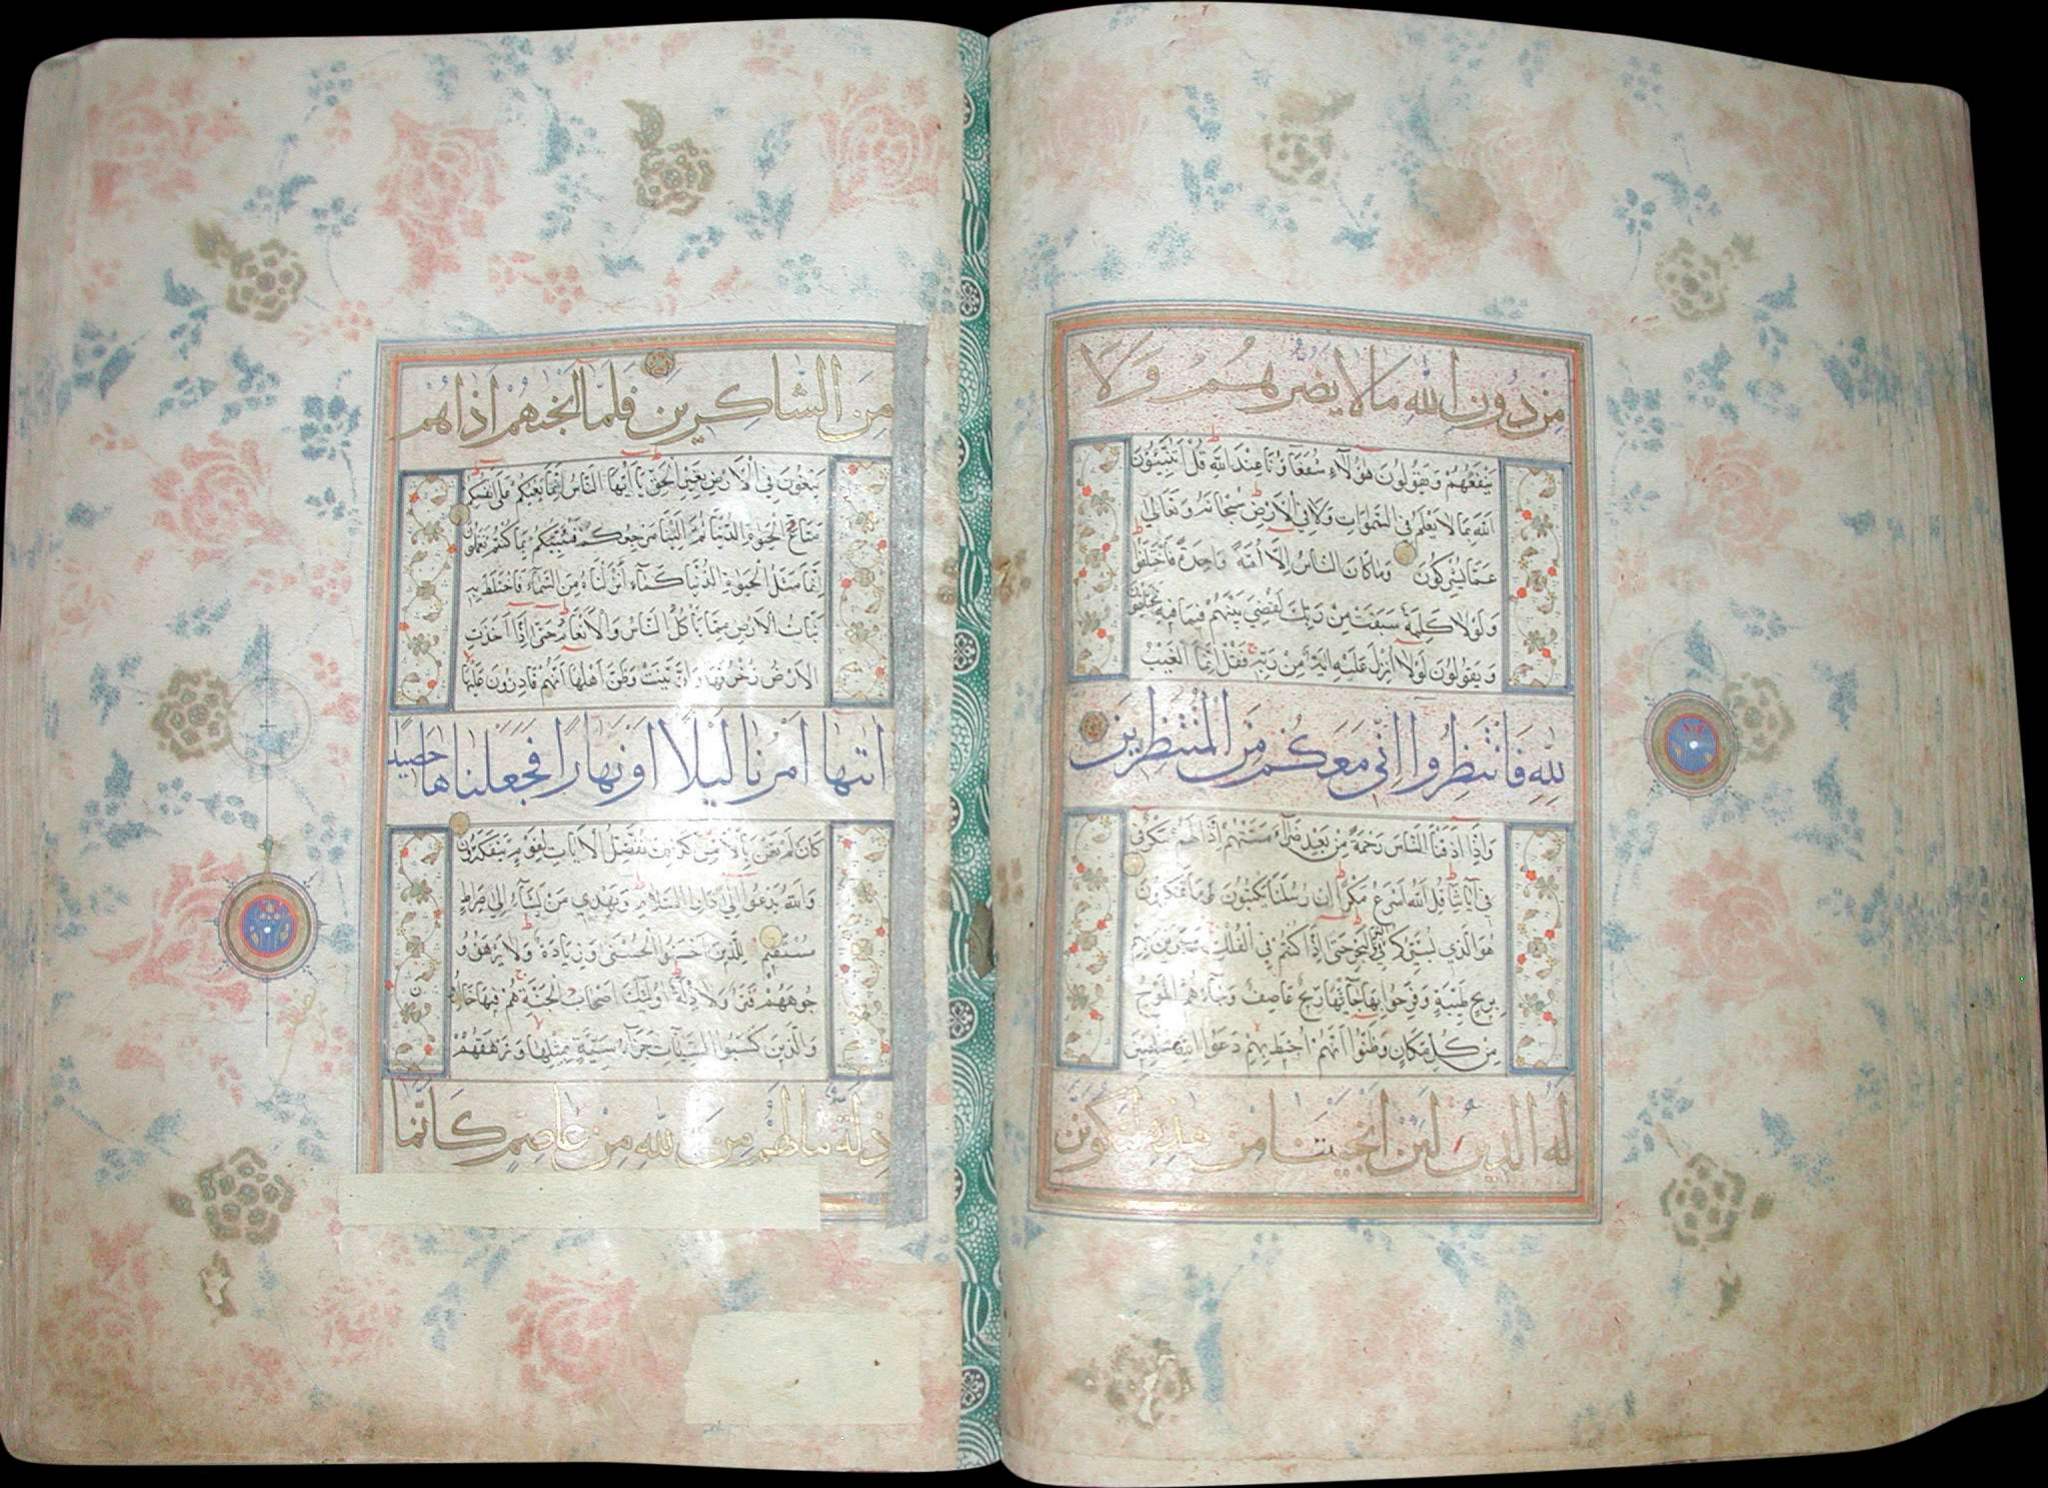 مِنْ دُونِ اللهِ مَا لَا يَضُرُّهُمْ وَلَا
يَنْفَعُهُمْ وَيَقُولُونَ هٰؤُلَاءِ شُفَعَاؤُنَا عِنْدَ اللهِ قُلْ اَتُنَبِّؤُنَ
اللهَ بِمَا لَا يَعْلَمُ فِي السَّمٰوَاتِ وَلَا فِي الْاَرْضِ سُبْحَانَهُ وَتَعَالٰى
عَمَّا يُشْرِكُونَ وَمَا كَانَ النَّاسُ اِلَّا اُمَّةً وَاحِدَةً فَاخْتَلَفُوا
وَلَوْلَا كَلِمَةٌ سَبَقَتْ مِنْ رَبِّكَ لَقُضِيَ بَيْنَهُمْ فِيمَا فِيهِ يَخْتَلِفُونَ
وَيَقُولُونَ لَوْلَا اُنْزِلَ عَلَيْهِ اٰيَةٌ مِنْ رَبِّهِ فَقُلْ اِنَّمَا الْغَيْبُ
لِلّٰهِ فَانْتَظِرُوا اِنِّي مَعَكُمْ مِنَ الْمُنْتَظِرِينَ
وَاِذَا اَذَقْنَا النَّاسَ رَحْمَةً مِنْ بَعْدِ ضَرَّاءَ مَسَّتْهُمْ اِذَا لَهُمْ مَكْرٌ
فِي اٰيَاتِنَا قُلِ اللهُ اَسْرَعُ مَكْرًا اِنَّ رُسُلَنَا يَكْتُبُونَ مَا تَمْكُرُونَ
هُوَ الَّذِي يُسَيِّرُكُمْ فِي الْبَرِّ وَالْبَحْرِ حَتّٰى اِذَا كُنْتُمْ فِي الْفُلْكِ وَجَرَيْنَ بِهِمْ
بِرِيحٍ طَيِّبَةٍ وَفَرِحُوا بِهَا جَاءَتْهَا رِيحٌ عَاصِفٌ وَجَاءَهُمُ الْمَوْجُ
مِنْ كُلِّ مَكَانٍ وَظَنُّوا اَنَّهُمْ اُحِيطَ بِهِمْ دَعَوُا اللهَ مُخْلِصِينَ
لَهُ الدِّينَ لَئِنْ اَنْجَيْتَنَا مِنْ هٰذِهِ لَنَكُونَنَّ
مِنَ الشَّاكِرِينَ فَلَمَّا اَنْجٰهُمْ اِذَا هُمْ
يَبْغُونَ فِي الْاَرْضِ بِغَيْرِ الْحَقِّ يَا اَيُّهَا النَّاسُ اِنَّمَا بَغْيُكُمْ عَلٰى اَنْفُسِكُمْ
مَتَاعَ الْحَيٰوةِ الدُّنْيَا ثُمَّ اِلَيْنَا مَرْجِعُكُمْ فَنُنَبِّئُكُمْ بِمَا كُنْتُمْ تَعْمَلُونَ
اِنَّمَا مَثَلُ الْحَيٰوةِ الدُّنْيَا كَمَاءٍ اَنْزَلْنَاهُ مِنَ السَّمَاءِ فَاخْتَلَطَ بِهِ
نَبَاتُ الْاَرْضِ مِمَّا يَأْكُلُ النَّاسُ وَالْاَنْعَامُ حَتّٰى اِذَا اَخَذَتِ
الْاَرْضُ زُخْرُفَهَا وَازَّيَّنَتْ وَظَنَّ اَهْلُهَا اَنَّهُمْ قَادِرُونَ عَلَيْهَا
اَتٰيهَا اَمْرُنَا لَيْلًا اَوْ نَهَارًا فَجَعَلْنَاهَا حَصِيدًا
كَاَنْ لَمْ تَغْنَ بِالْاَمْسِ كَذٰلِكَ نُفَصِّلُ الْاٰيَاتِ لِقَوْمٍ يَتَفَكَّرُونَ
وَاللهُ يَدْعُوا اِلٰى دَارِ السَّلَامِ وَيَهْدِي مَنْ يَشَاءُ اِلٰى صِرَاطٍ
مُسْتَقِيمٍ لِلَّذِينَ اَحْسَنُوا الْحُسْنٰى وَزِيَادَةٌ وَلَا يَرْهَقُ وُ
جُوهَهُمْ قَتَرٌ وَلَا ذِلَّةٌ اُولٰئِكَ اَصْحَابُ الْجَنَّةِ هُمْ فِيهَا خَالِدُونَ
وَالَّذِينَ كَسَبُوا السَّيِّاٰتِ جَزَاءُ سَيِّئَةٍ بِمِثْلِهَا وَتَرْهَقُهُمْ
ذِلَّةٌ مَا لَهُمْ مِنَ اللهِ مِنْ عَاصِمٍ كَاَنَّمَا